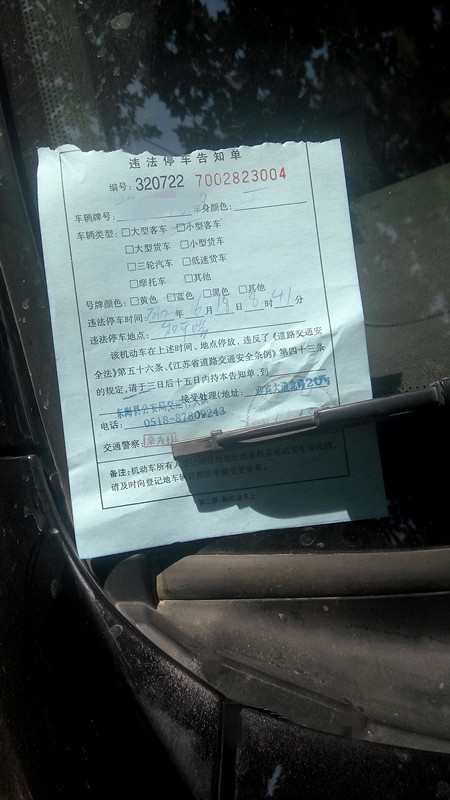 违法停车告知单
编号: 320722 7002823004
车辆牌号: 车身颜色:
车辆类型: □大型客车 □小型客车
□大型货车 □小型货车
□三轮汽车 □低速货车
□摩托车 □其他
号牌颜色: □黄色 □蓝色 □黑色 □其他
违法停车时间: 年 6 月 18 日 8 时 41 分
违法停车地点:
该机动车在上述时间、地点停放,违反了《道路交通安
全法》第五十六条、《江苏省道路交通安全条例》第四十三条
的规定,请于三日后十五日内持本告知单,到
东海县公安局 接受处理(地址:
电话: 0518-87809243
交通警察:
备注:机动车所有人
请及时向登记地车辆管理所申请变更备案。